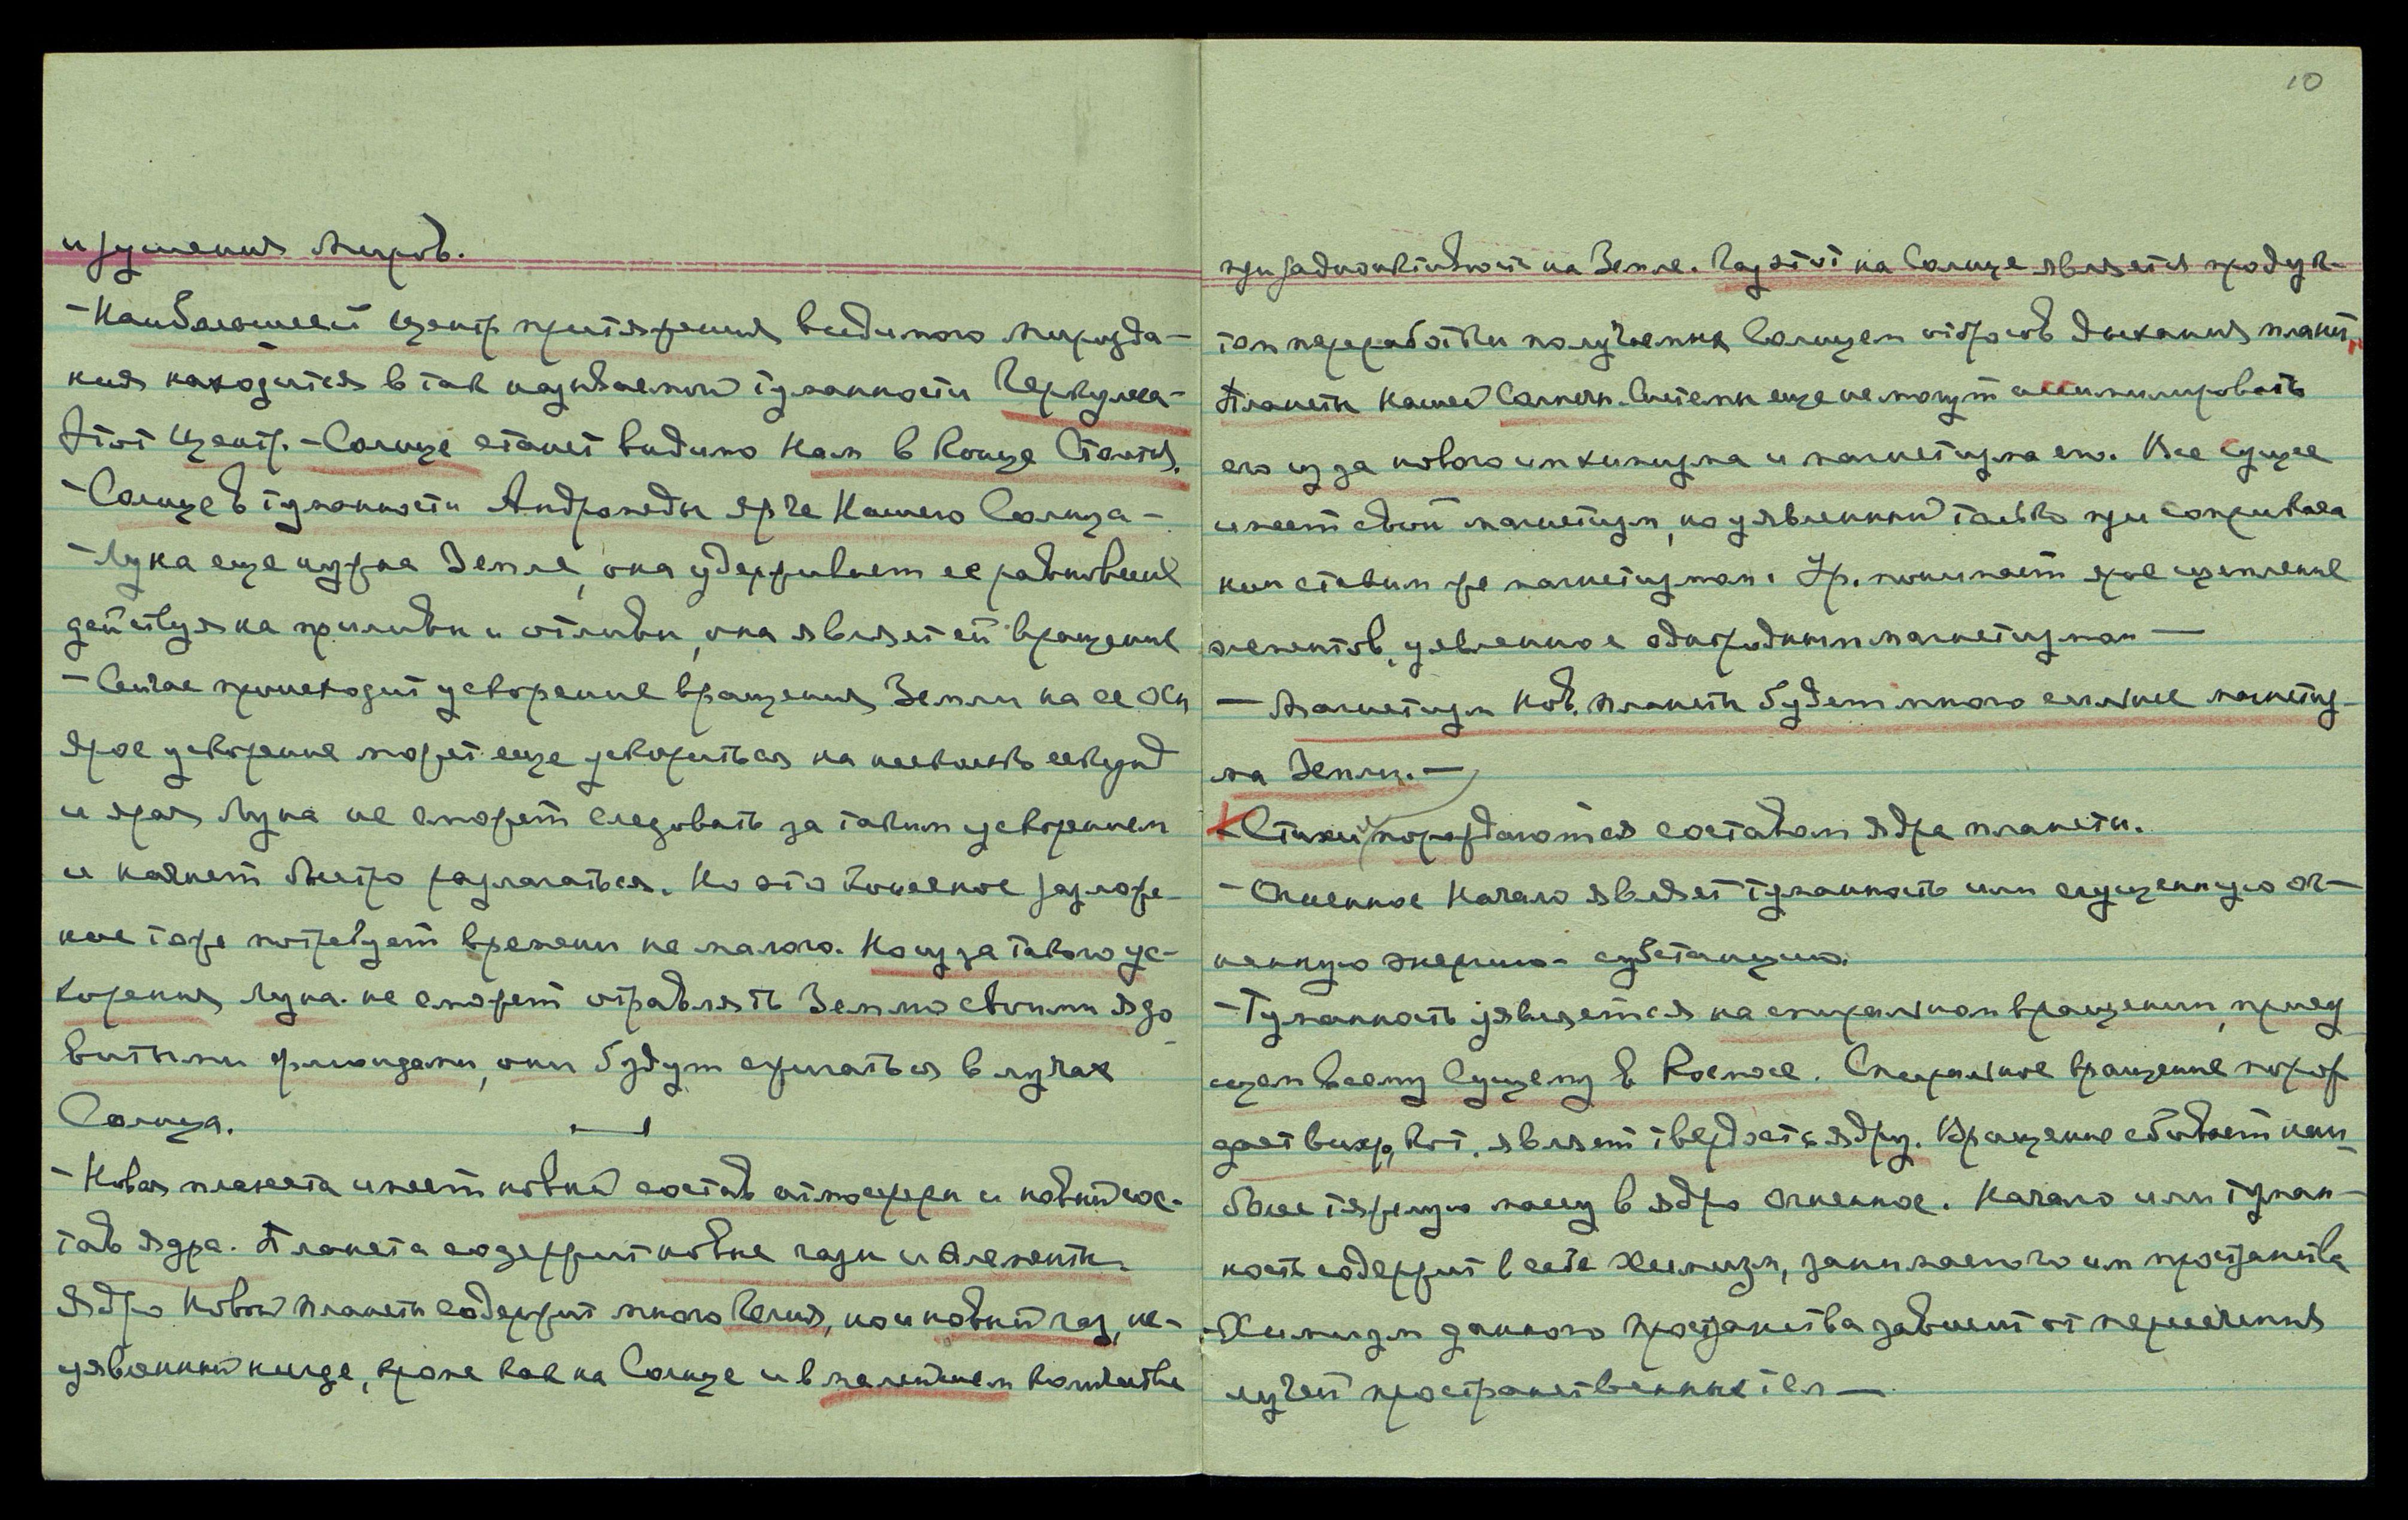 и рушения Миров.
- Наибольший центр притяжения видимого мирозда-
ния находится в так называемой туманности Геркулеса -
Этот центр. - Солнце станет видимо Нам в конце Столет.
- Солнце в туманности Андромеды ярче Нашего Солнца -
- Луна еще нужна Земле, она удерживает ее равновесие
действуя на приливы и отливы, она являет ей вращение
- Сейчас происходит ускорение вращения Земли на ее оси
ярое ускорение может еще ускориться на несколько секунд
и ярая Луна не сможет следовать за таким ускорением
и начнет быстро разлагаться. Но это конечное разложе-
ние тоже потребует времени не малого. Но из за такого ус-
корения Луна не сможет отравлять Землю своими ядо-
витыми флюидами, они будут сжигаться в лучах
Солнца.
- Новая планета имеет новый состав атмосферы и новый сос-
тав ядра. Планета содержит новые газы и элементы.
Ядро Новой планеты содержит много Гелия, но и новый газ, не-
уявленный нигде, кроме как на Солнце и в малейшем количестве
10
при радиоактивности на Земле. Газ этот на Солнце является продук-
том переработки полученных Солнцем отбросов дыхания планет.
Планеты нашей Солнечн. Системы еще не могут ассимилировать
его из за нового им химизма и магнетизма его. Все Сущее
имеет свой магнетизм, но уявленный только при соприкаса
нии с таким же магнетизмом. Ур. понимает ярое сцепление
элементов, уявленное однородным магнетизмом —
— Магнетизм Нов. планеты будет много сильнее магнетиз-
ма Земли. —
- Стихии порождаются составом ядра планеты.
- Огненное Начало являет туманность или сгущенную ог-
ненную энергию - субстанцию.
- Туманность уявляется на спиральном вращении, прису
щем всему Сущему в Космосе. Спиральное вращение порож
дает вихрь, кот. являет твердость ядру. Вращение сбивает наи-
более тяжелую массу в ядро огненное. Начало или туман-
ность содержит в себе химизм, занимаемого им пространства
- Химизм данного пространства зависит от пересечения
лучей пространственных тел —